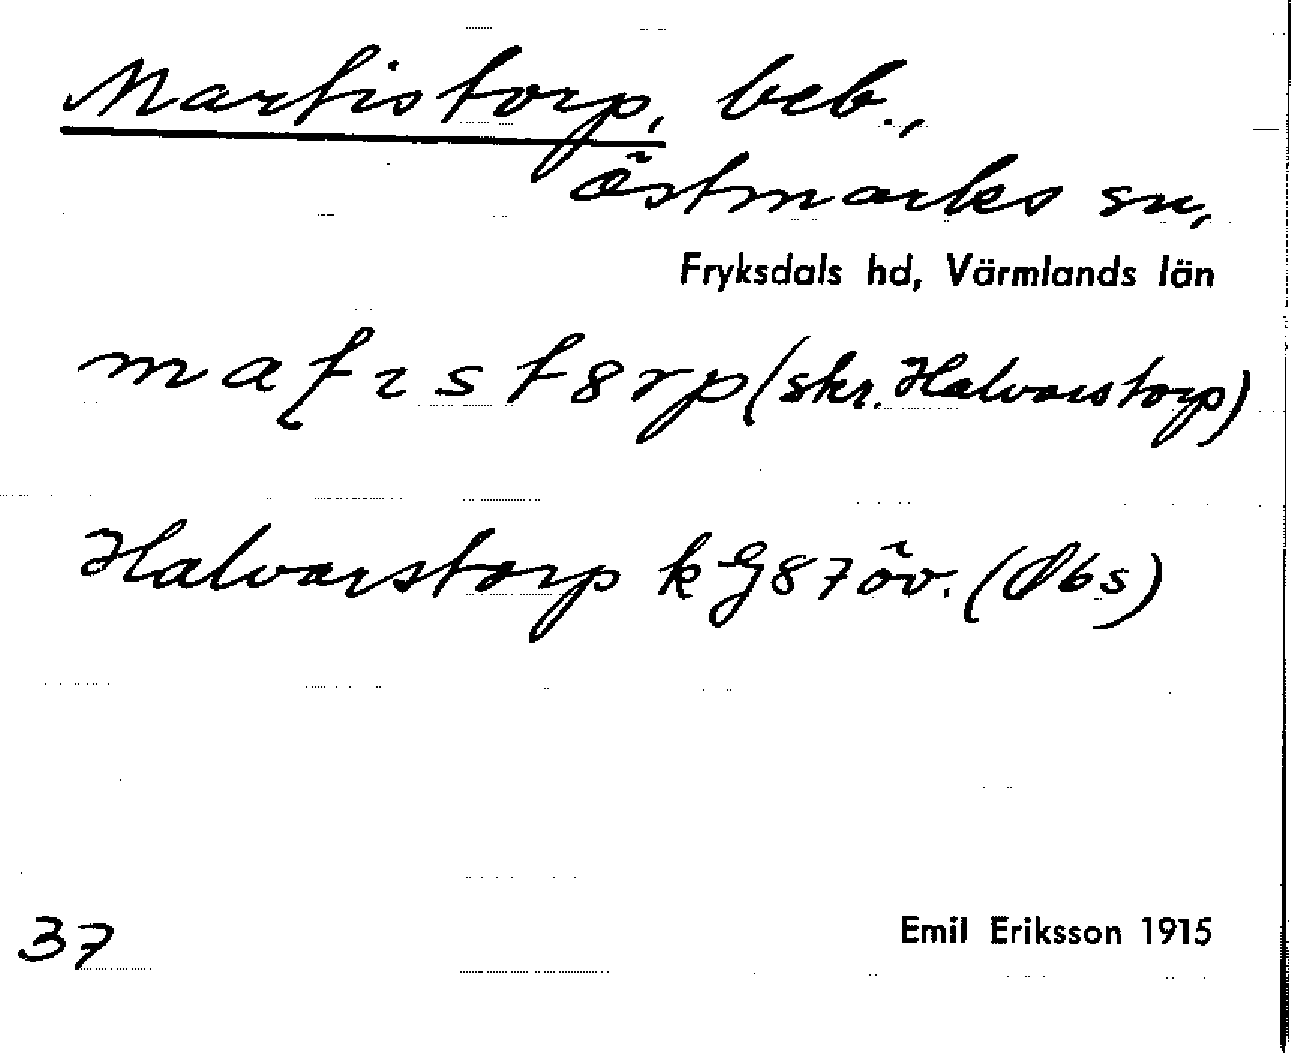 Martistorp, beb.,
Östmarks sn,
Fryksdals hd, Värmlands län
(skr. Halvarstorp)
Halvarstorp k G87 öv. (Obs)
37
Emil Eriksson 1915